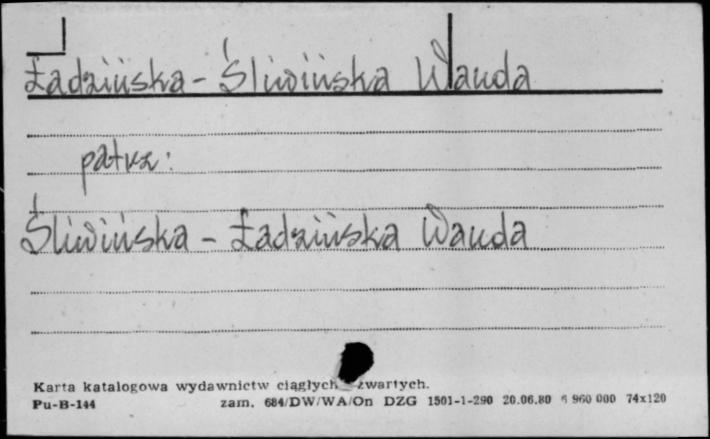 Ładzińska - Śliwińska Wanda
patrz:
Śliwińska - Ładzińska Wanda
Karta katalogowa wydawnictw ciągłych zwartych.
Pu-B-144 zam. 684/DW/WA/On DZG 1501-1-290 20.06.80 960 000 74x120